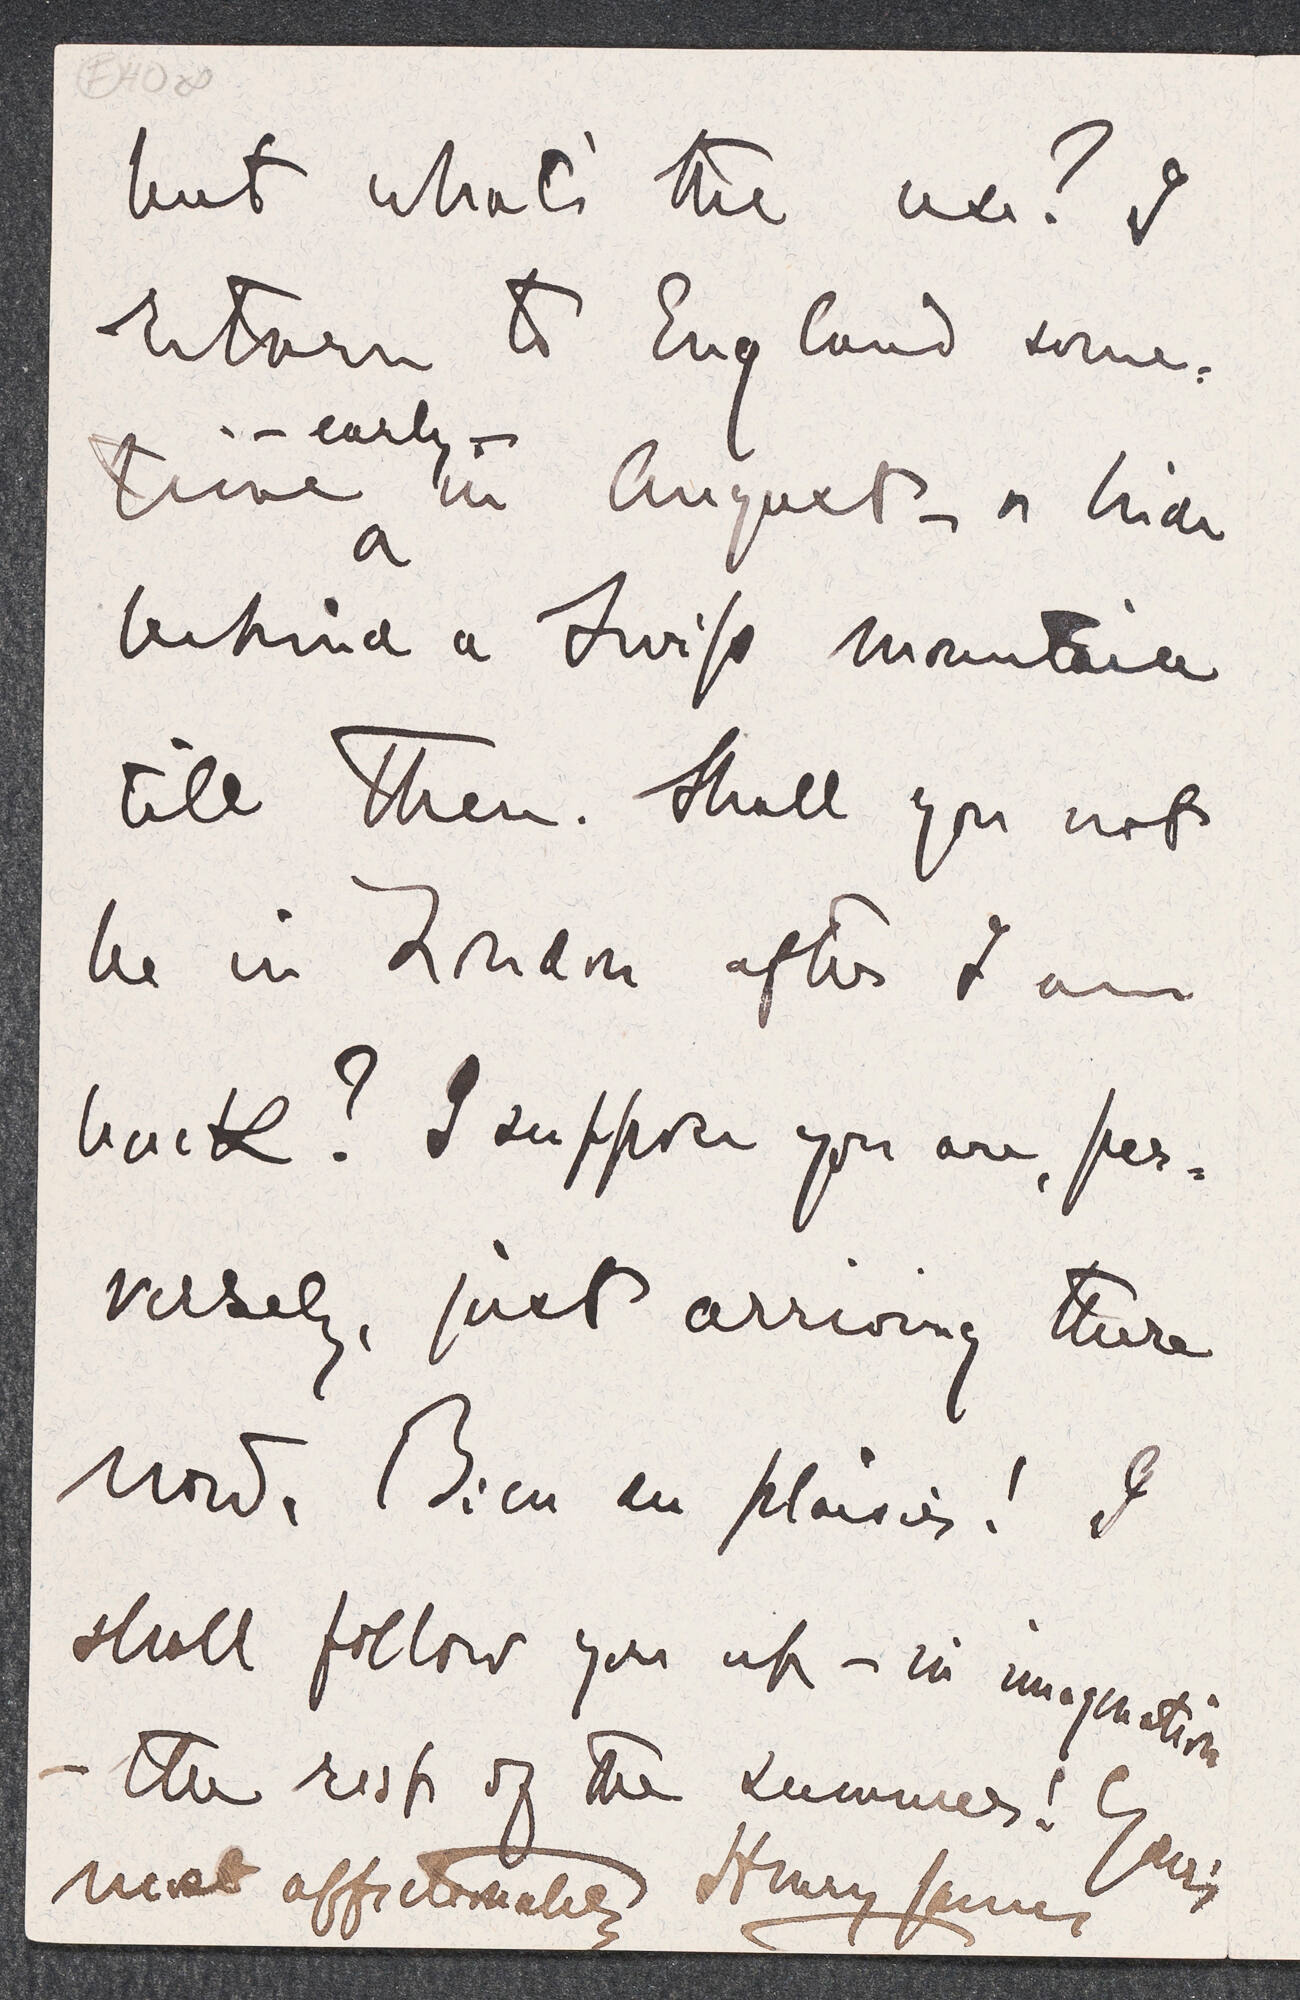 but what's the use? I
return to England some=
time – early – in August – & hide
behind a Swiss mountain
till then. Shall you not
be in London after I am
back? I suppose you are, per=
versely, just arriving there
now. Bien du plaisir! I
shall follow you up – in imagination
– the rest of the summer! Yours
most affectionately Henry James